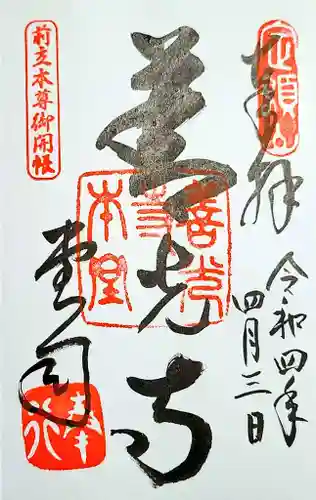 奉拝
令和四年
四月三日
定額山
善光寺
善光寺本堂
前立本尊御開帳
堂司
奉行